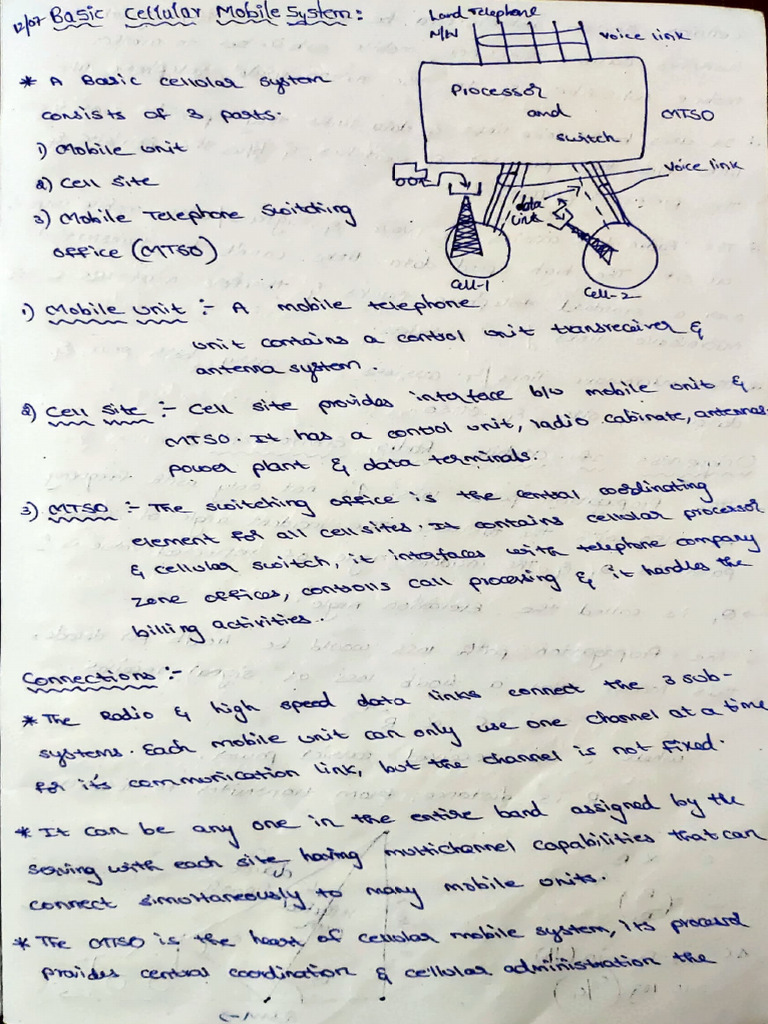 12/07 Basic Cellular Mobile System:
Land Telephone
N/W
Voice link
Processor
and
switch
MTSO
Voice link
data
link
Cell-1
Cell-2
* A Basic cellular system
consists of 3 parts.
1) Mobile unit
2) Cell site
3) Mobile Telephone Switching
office (MTSO)
1) Mobile Unit :- A mobile telephone
unit contains a control unit transreceiver &
antenna system.
2) Cell Site :- Cell site provides interface b/w mobile unit &
MTSO. It has a control unit, radio cabinate, antennas
power plant & data terminals.
3) MTSO :- The switching office is the central coordinating
element for all cell sites. It contains cellular processor
& cellular switch, it interfaces with telephone company
zone offices, controlls call processing & it handles the
billing activities.
Connections :-
* The Radio & high speed data links connect the 3 sub-
systems. Each mobile unit can only use one channel at a time
for it's communication link, but the channel is not fixed.
* It can be any one in the entire band assigned by the
serving with each site having multichannel capabilities that can
connect simultaneously to many mobile units.
* The MTSO is the heart of cellular mobile system, its processor
provides central coordination & cellular administration the